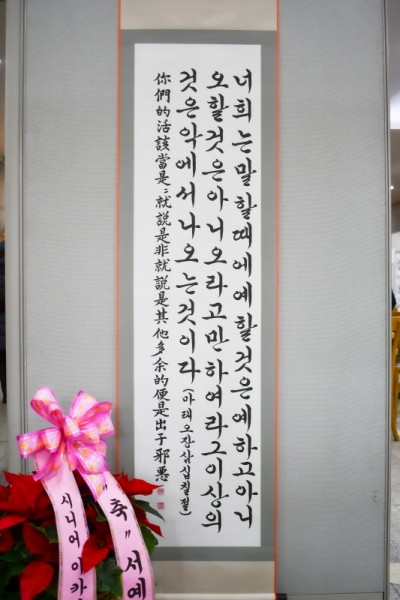 너희는말할때에예할것은예하고아니
오할것은아니오라고만하여라그이상의
것은악에서나오는것이다(마태오장삼십칠절)
你們的活該當是〻就說是非就說是其他多余的便是出于邪惡
"축" 서예
시니어 아카